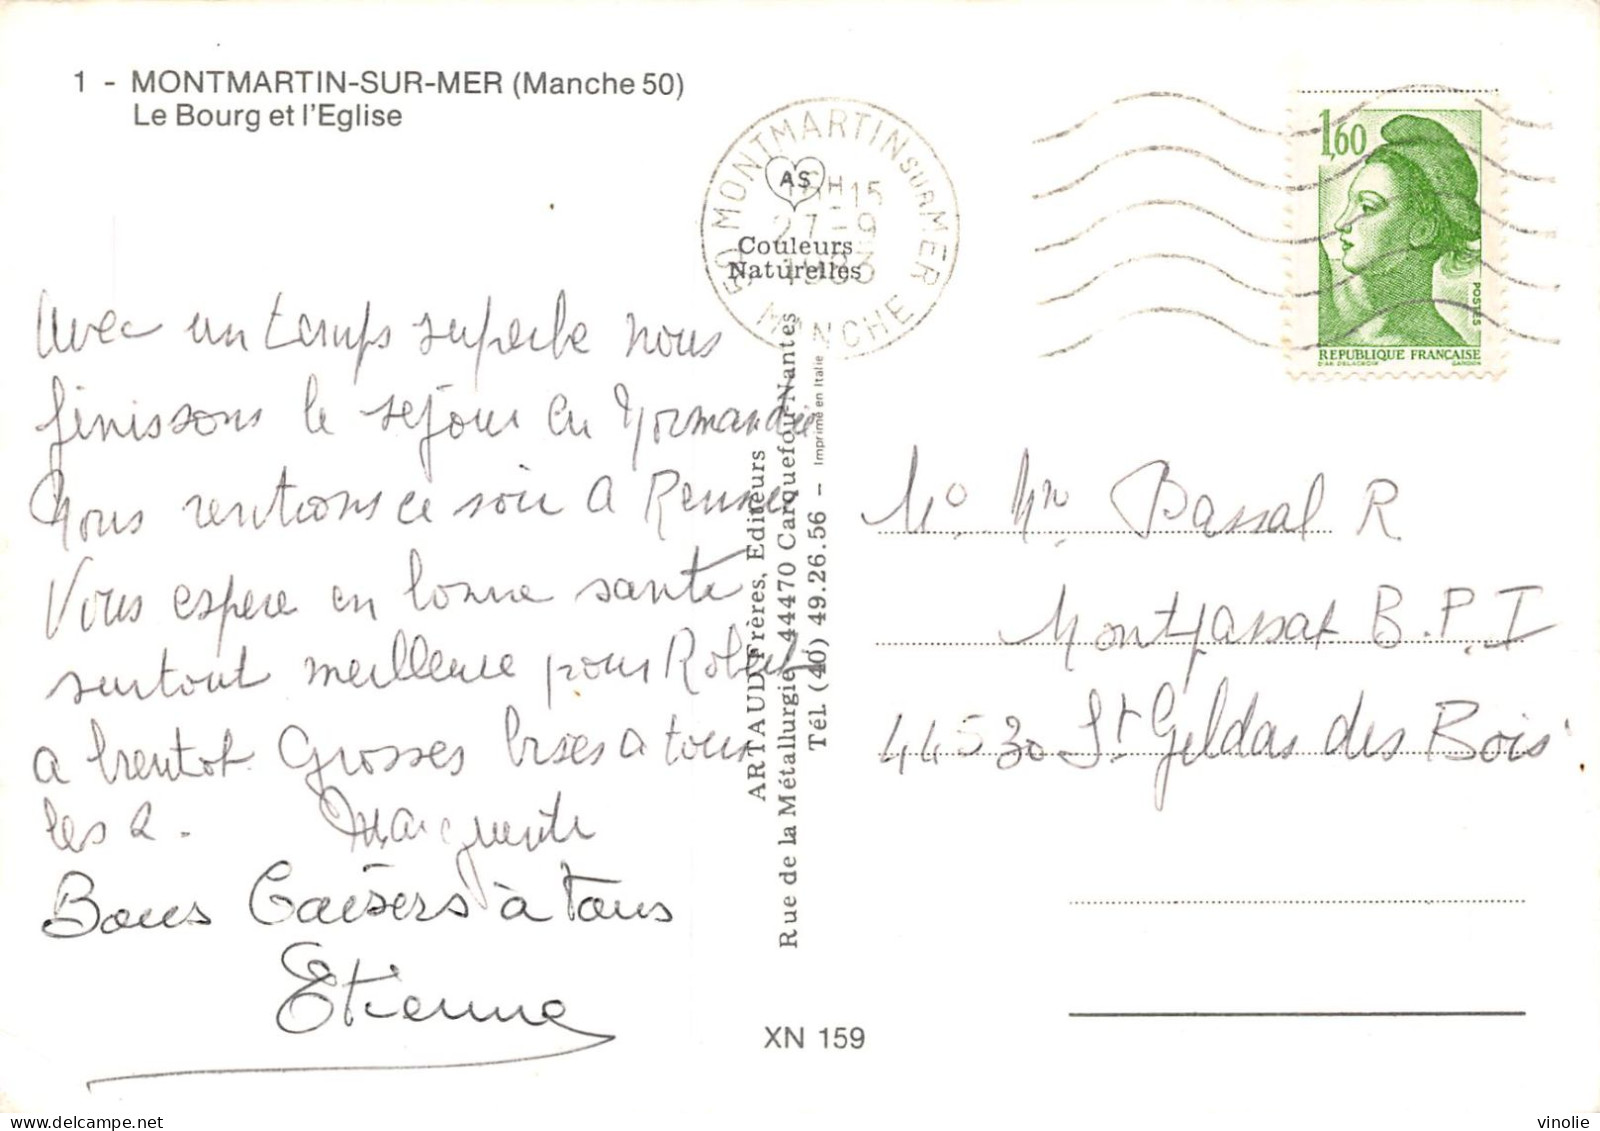 1 - MONTMARTIN-SUR-MER (Manche 50)
Le Bourg et l'Eglise
50 MONTMARTIN SUR MER
MANCHE
16H-15
27-9
1983
AS
Couleurs
Naturelles
1,60
POSTES
REPUBLIQUE FRANÇAISE
D'AP. DELACROIX GANDON
Avec un temps superbe nous
finissons le séjour en Normandie
Nous rentrons ce soir a Rennes
Vous espere en bonne sante
surtout meilleure pour Robert
a bientot Grosses bises a tous
les 2. Marguerite
Bons Baisers à tous
Etienne
ARTAUD Frères, Editeurs
Rue de la Métallurgie 44470 Carquefou-Nantes
Tél. (40) 49.26.56 - Imprimé en Italie
Mr Mm Bassal R
Montpassat B.P. I
44530 St Geldas des Bois
XN 159
vinolie